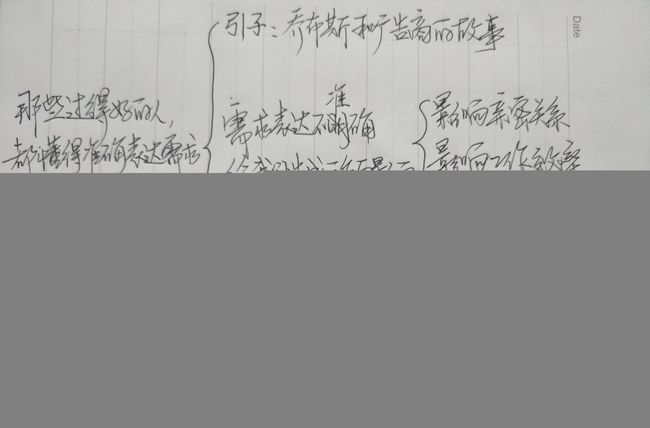 引子：乔布斯和广告商的故事
Date
那些过得好的人，
都懂得准确表达需求
需求表达不准确
影响亲密关系
影响工作效率